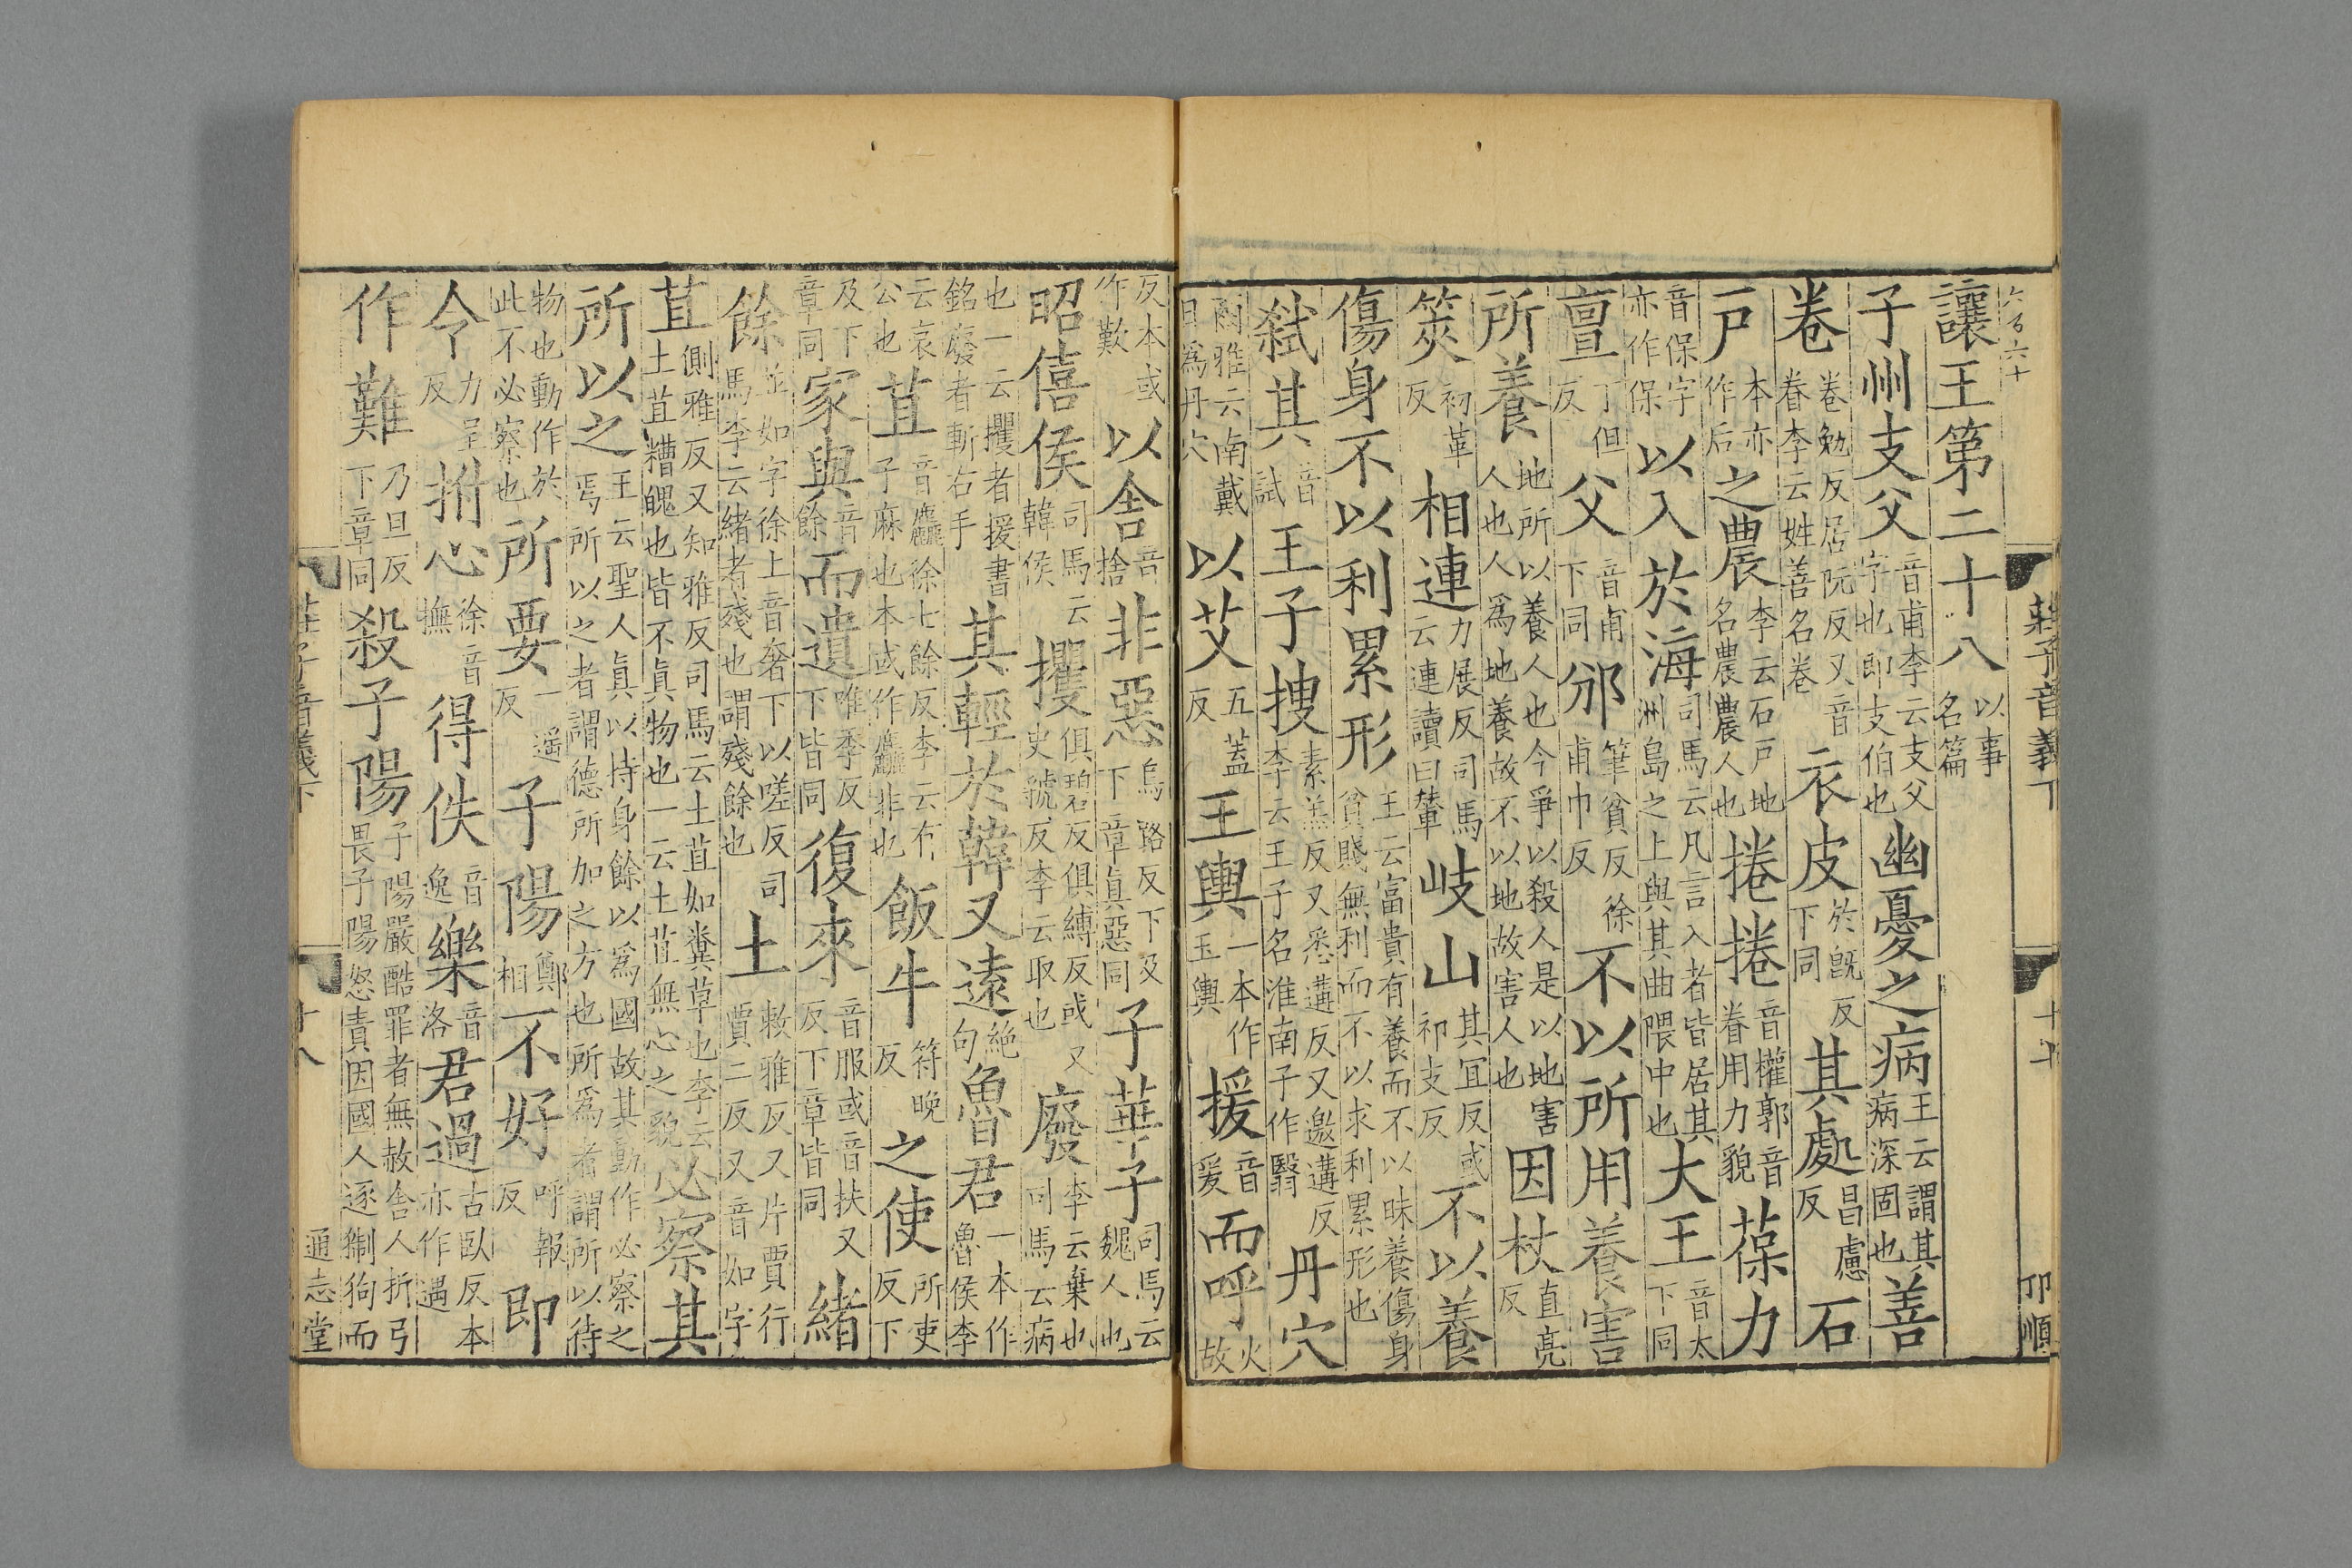 六百六十
莊子音義下
十七
卬順
讓王第二十八以事名篇
子州支父音甫李云支父字也即支伯也幽憂之病王云謂其病深固也善
卷卷勉反居阮反又音眷李云姓善名卷衣皮於旣反下同其處昌慮反石
戶本亦作后之農李云石戶地名農農人也捲捲音權郭音眷用力貌葆力
音保字亦作保以入於海司馬云凡言入者皆居其洲島之上與其曲隈中也大王音太下同
亶丁但反父音甫下同邠筆貧反徐甫巾反不以所用養害
所養地所以養人也今爭以殺人是以地害人也人爲地養故不以地故害人也因杖直亮反
筴初革反相連力展反司馬云連讀曰輦岐山其宜反或祁支反不以養
傷身不以利累形王云富貴有養而不以昧養傷身貧賤無利而不以求利累形也
弑其音試王子捜素羔反又悉遘反又邀遘反李云王子名淮南子作翳丹穴
爾雅云南戴日爲丹穴以艾五蓋反王輿一本作玉輿援音爰而呼火故
反本或作歎以舍音捨非惡烏路反下及下章眞惡同子華子司馬云魏人也
昭僖侯司馬云韓侯攫俱碧反俱縛反或又史虢反李云取也廢李云棄也司馬云病
也一云攫者援書銘廢者斬右手其輕於韓又遠絶句魯君一本作魯侯李
云哀公也苴音麤徐七餘反李云有子麻也本或作麤非也飯牛符晚反之使所吏反下
及下章同家與音餘而遺唯季反下皆同復來音服或音扶又反下章皆同緖
餘並如字徐上音奢下以嗟反司馬李云緖者殘也謂殘餘也土敕雅反又片賈行賈二反又音如字
苴側雅反又知雅反司馬云土苴如糞草也李云土苴糟魄也皆不眞物也一云土苴無心之貌必察其
所以之王云聖人眞以持身餘以爲國故其動作必察之焉所以之者謂德所加之方也所爲者謂所以待
物也動作於此不必察也所要一遥反子陽鄭相不好呼報反即
令力呈反拊心徐音撫得佚音逸樂音洛君過古臥反本亦作遇
作難乃旦反下章同殺子陽子陽嚴酷罪者無赦舍人折弓畏子陽怒責因國人逐猘狗而
莊子音義下
十八
通志堂